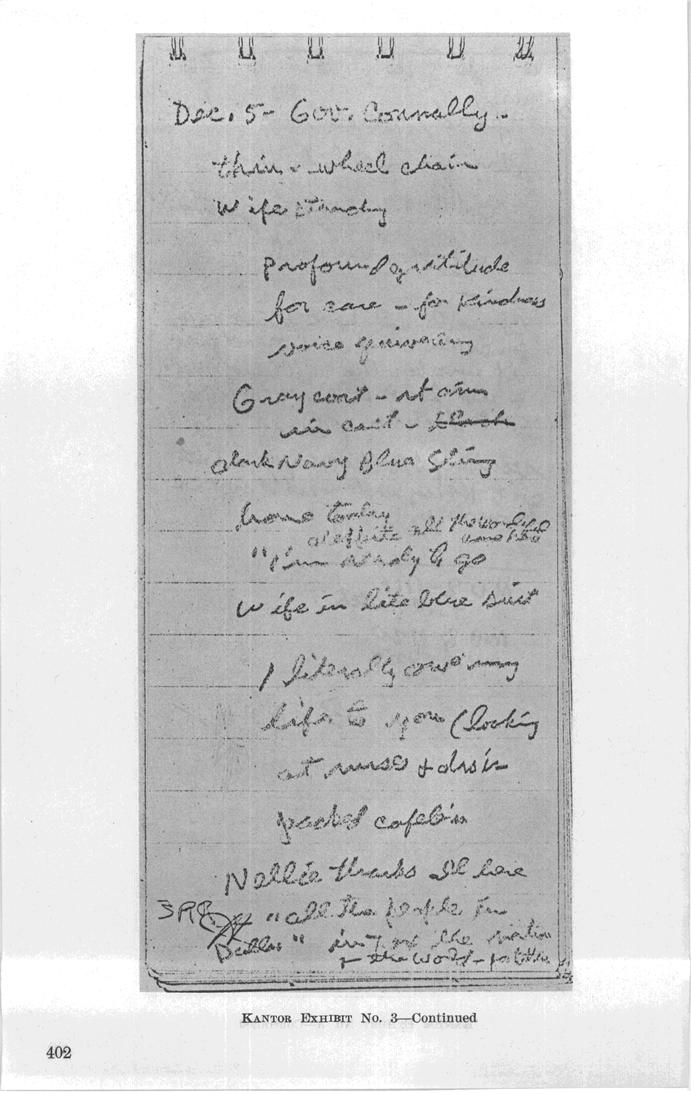 Dec. 5- Gov. Connally -
thin - wheel chair
Wife standing
profound gratitude
for care - for kindness
voice quivering
Gray coat - rt arm
in cast -
dark Navy Blue Sling
home today
despite all the wonderful
"I'm ready to go
Wife in lite blue suit
I literally owe my
life to you (looking
at nurses + drs in
packed cafeteria
Nellie thanks
"all the people in
Dallas" the nation
+ the world - for
KANTOR EXHIBIT No. 3—Continued
402